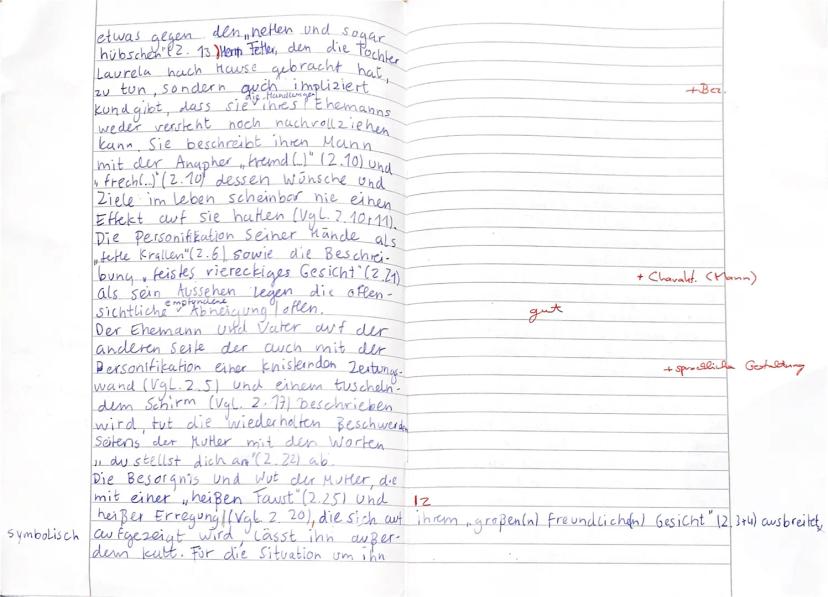 etwas gegen den „netten und sogar
hübschen" (Z. 13) Herrn Fetter, den die Tochter
Laurela nach Hause gebracht hat,
zu tun, sondern auch impliziert
+ Bez.
die Handlungen
kundgibt, dass sie ihres Ehemanns
weder versteht noch nachvollziehen
kann. Sie beschreibt ihren Mann
mit der Anapher „fremd(..)" (Z.10) und
„frech(..)" (Z.10) dessen Wünsche und
Ziele im Leben scheinbar nie einen
Effekt auf sie hatten (Vgl. Z.10+11).
Die Personifikation seiner Hände als
„fette Krallen" (Z.6) sowie die Beschrei-
bung „feistes viereckiges Gesicht" (Z.21)
+ Charakt. (Mann)
als sein Aussehen legen die offen-
empfundene
sichtliche Abneigung offen.
gut
Der Ehemann und Vater auf der
anderen Seite der auch mit der
Personifikation einer knisternden Zeitungs-
+ sprachliche Gestaltung
wand (Vgl. Z.5) und einem tuscheln-
dem Schirm (Vgl. Z.17) beschrieben
wird, tut die wiederholten Beschwerden
Seitens der Mutter mit den Worten
„du stellst dich an" (Z.22) ab.
Die Besorgnis und Wut der Mutter, die
mit einer „heißen Faust" (Z.25) und
12
heißer Erregung (Vgl. Z. 20), die sich auf ihrem „großen(n) freundlich(n) Gesicht" (Z.3+4) ausbreitet,
symbolisch aufgezeigt wird, lässt ihn außer-
dem kalt. Für die Situation um ihn